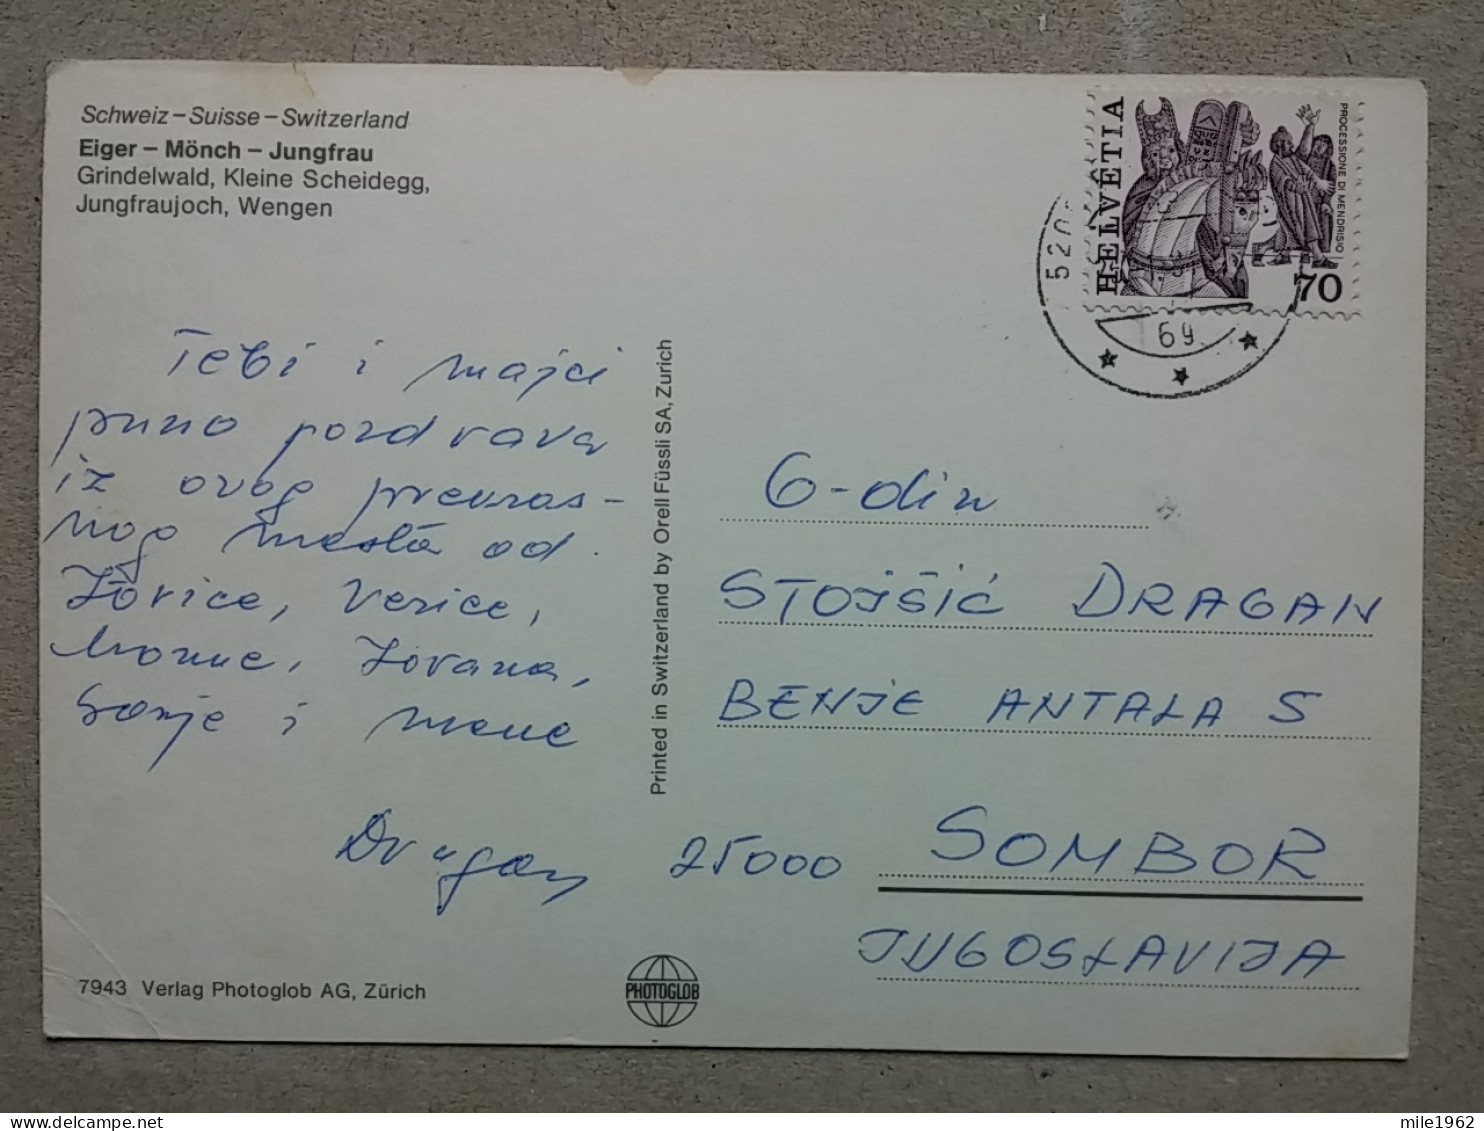 Schweiz – Suisse – Switzerland
Eiger – Mönch – Jungfrau
Grindelwald, Kleine Scheidegg,
Jungfraujoch, Wengen
HELVETIA
PROCESSIONE DI MENDRISIO
70
520
69
Tebi i majci
puno pozdrava
iz ovog prekras-
nog mesta od
Jovice, Verice,
Jovana,
Sanje i mene
Dragan
Printed in Switzerland by Orell Füssli SA, Zurich
G-din
STOJŠIĆ DRAGAN
BENJE ANTALA 5
25000 SOMBOR
JUGOSLAVIJA
7943 Verlag Photoglob AG, Zürich
PHOTOGLOB
mile1962